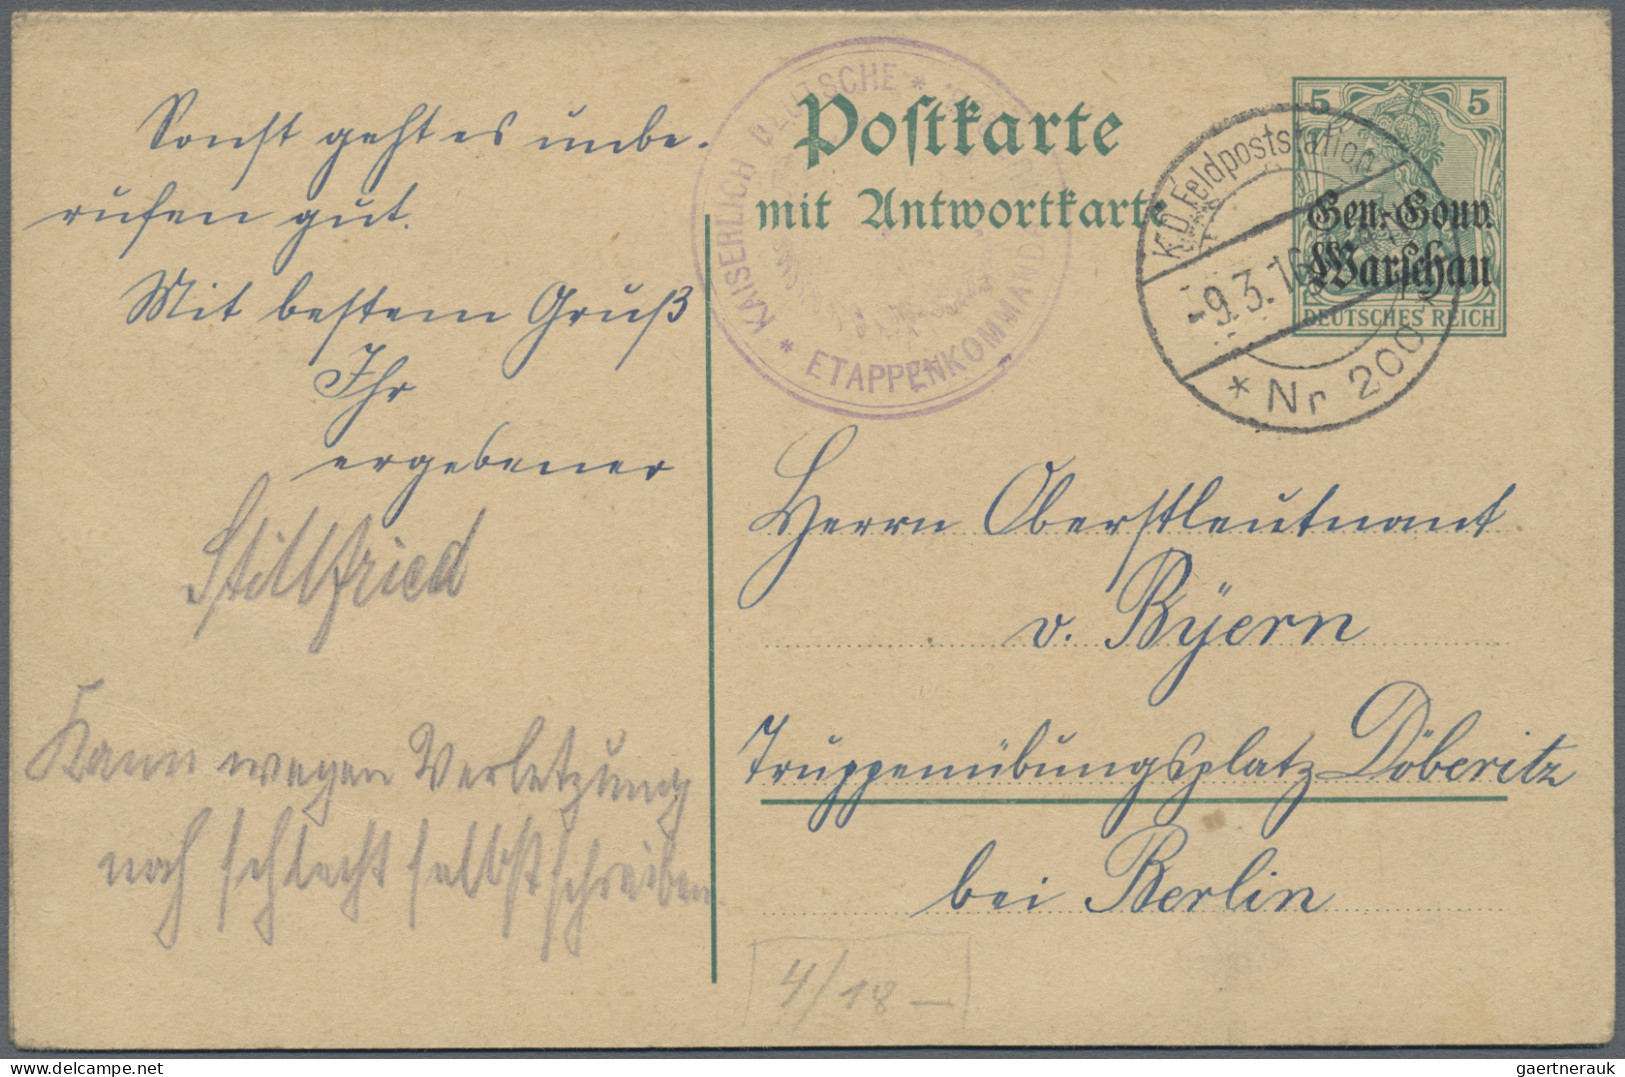 Sonst geht es unbe-
rufen gut.
Mit bestem Gruß
Ihr
ergebener
Stillfried
Kann wegen Verletzung
noch schlecht selbst schreiben.
Postkarte
mit Antwortkarte
KAISERLICH DEUTSCHE *
* ETAPPENKOMMANDA
K.D. Feldpoststation
-9.3.16
* Nr 200
5 5
Gen.-Gouv.
Warschau
DEUTSCHES REICH
Herrn Oberstleutnant
v. Byern
Truppenübungsplatz Döberitz
bei Berlin
4/18 —
gaertnerauk